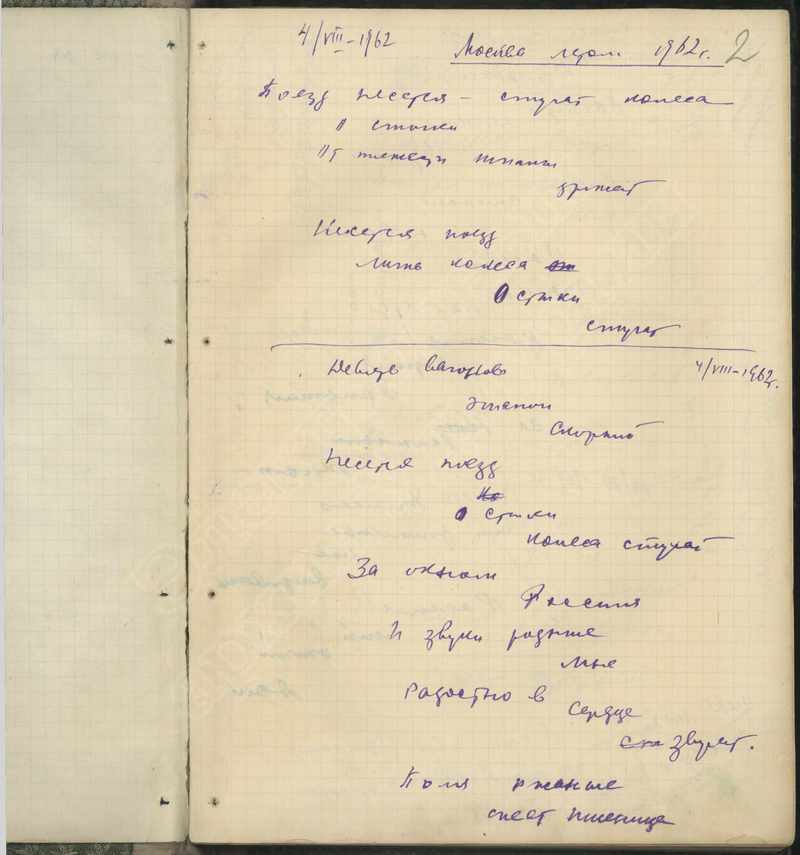 4/VIII-1962 Москва летом 1962 г. 2
Поезд несется – стучат колеса
О стыки
От тяжести шпалы
дрожат
Несется поезд
лишь колеса
О стыки
стучат
Девять вагонов 4/VIII-1962 г.
Скорый
Несется поезд
Но
О стыки
колеса стучат
За окном
Россия
И звуки родные
мне
Радостно в
сердце
звучат.
Поля ржаные
спеет пшеница